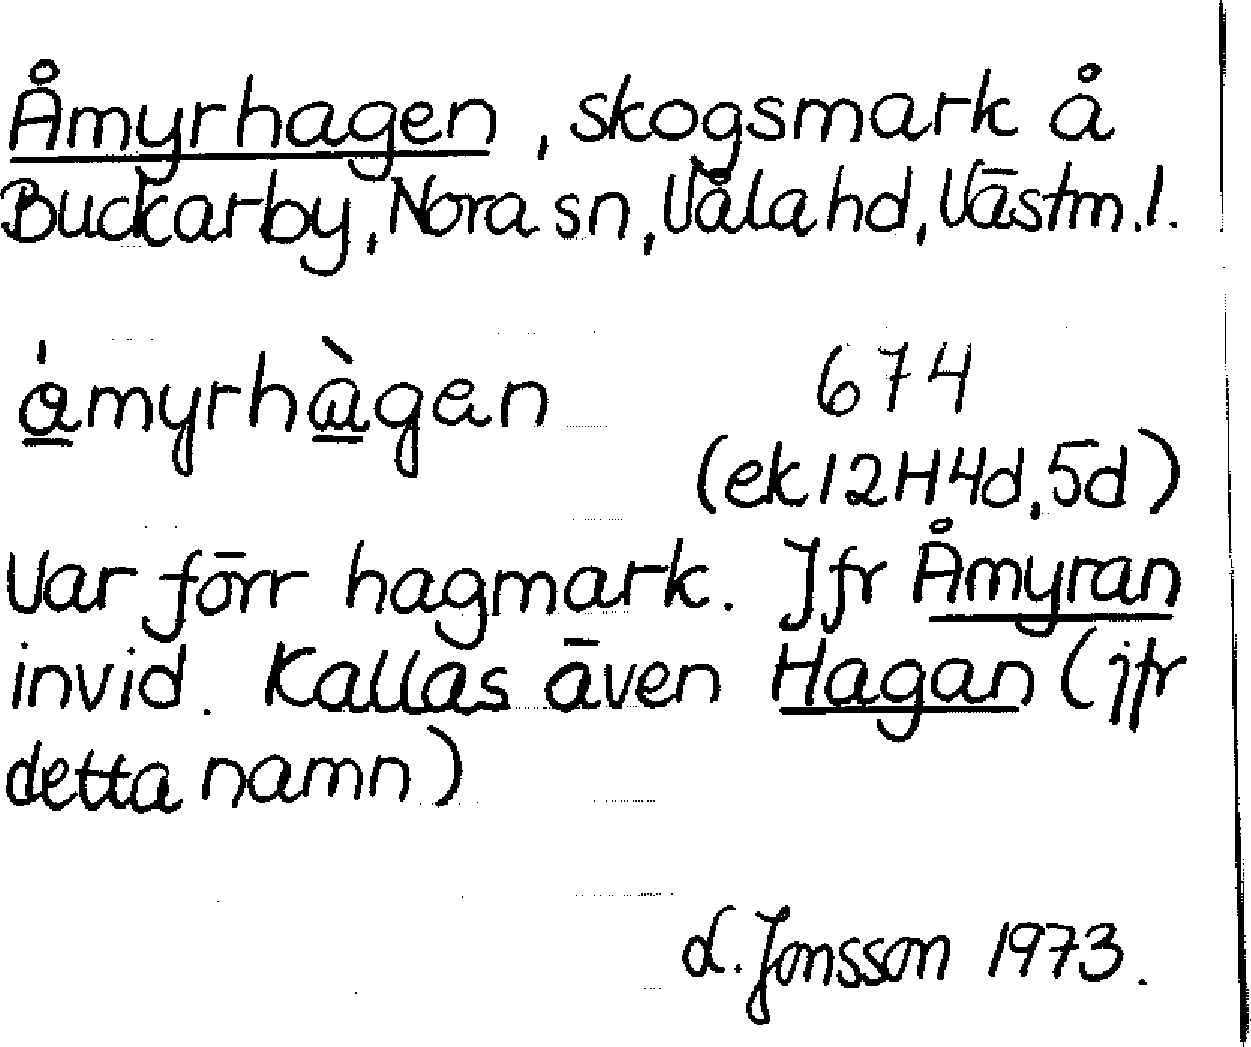 Åmyrhagen, skogsmark å
Buckarby, Nora sn, Våla hd, Västm.l.
åmyrhàgen
674
(ek 12H4d, 5d)
Var förr hagmark. Jfr Åmyran
invid. Kallas även Hagan (jfr
detta namn)
L. Jonsson 1973.